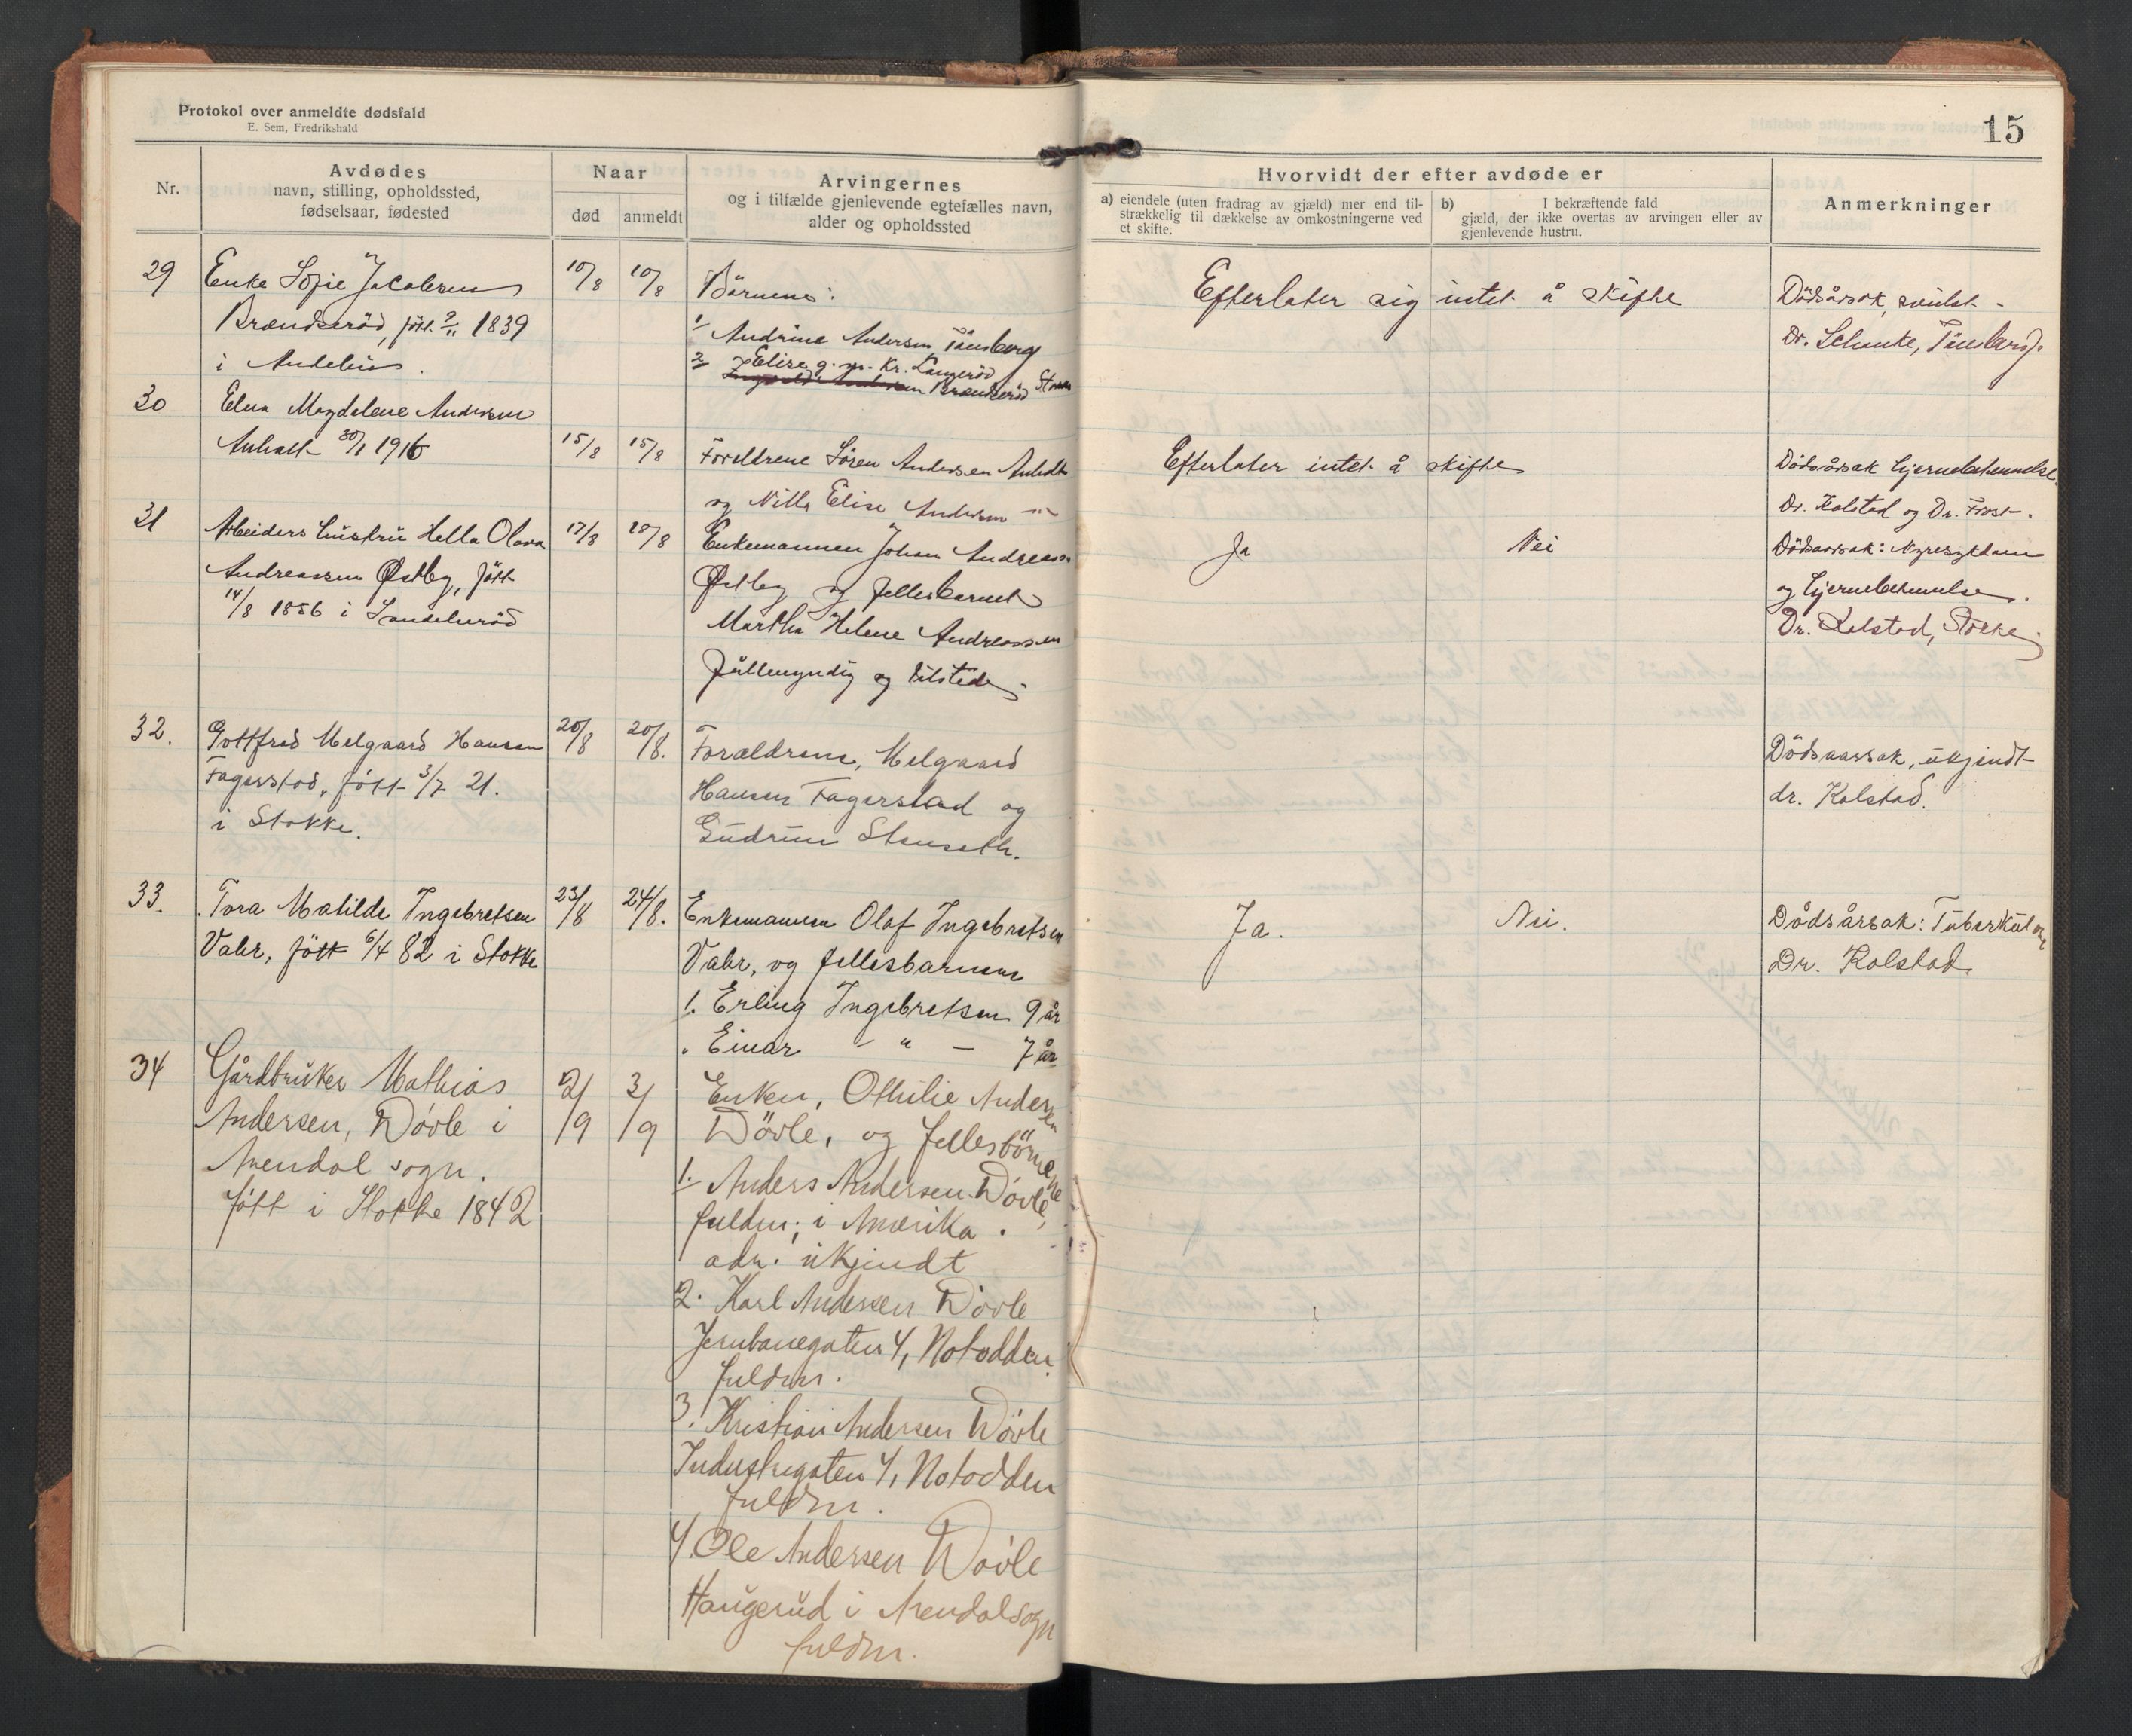 Protokol over anmeldte dødsfald
E. Sem, Fredrikshald
15
Nr.
Avdødes
navn, stilling, opholdssted,
fødselsaar, fødested
Naar
død
anmeldt
Arvingernes
og i tilfælde gjenlevende egtefælles navn,
alder og opholdssted
Hvorvidt der efter avdøde er
a) eiendele (uten fradrag av gjæld) mer end til-
strækkelig til dækkelse av omkostningerne ved
et skifte.
b) I bekræftende fald
gjæld, der ikke overtas av arvingen eller av
gjenlevende hustru.
Anmerkninger
29
Enke Sofie Jacobsen
Brændserød, født 9/11 1839
i Andebu.
10/8
10/8
Børnene:
1/ Andrine Andersen Tønsberg
2/ Elise g. m. Kr. Langerød
Brændserød
Efterlater sig intet å skifte
Dødsårsak, svulst -
Dr. Schanke, Tønsberg.
30
Elna Magdelene Andersen
Anholt 30/1 1916
15/8
15/8
Foreldrene Søren Andersen Anholt
og Nilla Elise Andersen -"-
Efterlater intet å skifte
Dødsårsak hjernebetennelse.
Dr. Kolstad og Dr. Frost.
31
Arbeiders hustru Hella Olava
Andreassen Østby, født
14/8 1856 i Sandeherød
17/8
18/8
Enkemannen Johan Andreassen
Østby og fellesbarnet
Martha Helene Andreassen
fullmyndig og tilstede.
Ja
Nei
Dødsaarsak: Nyresykdom
og hjernebetennelse.
Dr. Kolstad, Stokke
32.
Gottfred Melgaard Hansen
Fagerstad, født 3/7 21.
i Stokke.
20/8
20/8.
Forældrene, Melgaard
Hansen Fagerstad og
Gudrun Stenseth.
Dødsaarsak, ukjendt
dr. Kolstad.
33.
Tora Matilde Ingebretsen
Valør, født 6/4 82 i Stokke
23/8
24/8.
Enkemannen Olaf Ingebretsen
Valør, og fellesbarnene
1. Erling Ingebretsen 9 år
" Einar - " - 7 år
Ja.
Nei.
Dødsårsak: Tuberkulose
Dr. Kolstad.
34
Gårdbruker Mathias
Andersen, Døvle i
Arendal sogn.
født i Stokke 1842
2/9
3/9
Enken, Othilie Andersen
Døvle, og fellesbørnene
1. Anders Andersen Døvle,
fuldm; i Amerika.
adr. ukjendt
2. Karl Andersen Døvle
Jernbanegaten 4, Notodden
fuldm.
3. Kristian Andersen Døvle
Industrigaten 4, Notodden
fuldm.
4. Ole Andersen Døvle
Haugerud i Arendalsogn
fuldm.